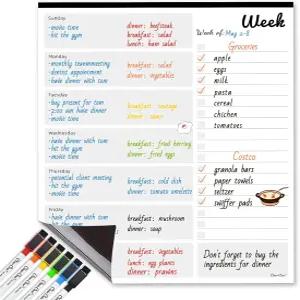 Week
Week of: May 2-8
Sunday
- movie time
- hit the gym
dinner: beefsteak
breakfast: salad
lunch: ham salad
Monday
- monthly teammeeting
- dentist appointment
- have dinner with tom
breakfast: salad
dinner: vegetables
Tuesday
- buy present for tom
- 2:00 can have dinner
- movie time
breakfast: sausage
dinner: sauce
Wednesday
- have dinner with tom
- hit the gym
- movie time
breakfast: fried herring
dinner: fried eggs
Thursday
- potential client meeting
- hit the gym
- movie time
breakfast: cold dish
dinner: tomato omelette
Friday
- have dinner with tom
- hit the gym
- movie time
breakfast: mushroom
dinner: soup
breakfast: vegetables
lunch: egg plants
dinner: prawns
Groceries
apple
eggs
milk
pasta
cereal
chicken
tomatoes
Costco
granola bars
paper towels
seltzer
swiffer pads
Don't forget to buy the
ingredients for dinner